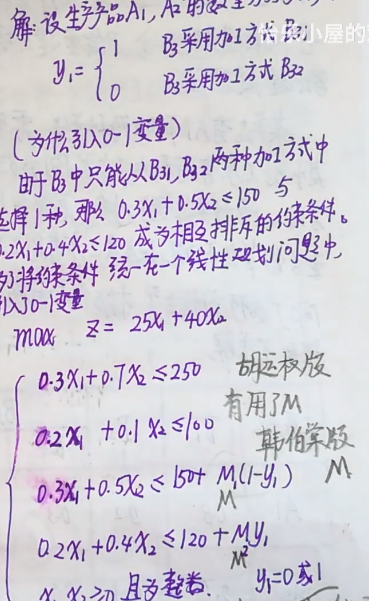 解:设生产产品A₁,A₂的数量分别为
怡然小屋的
y₁= { 1 B₃采用加工方式B₃₁
0 B₃采用加工方式B₃₂
(为什么引入0-1变量)
由于B₃中只能从B₃₁,B₃₂两种加工方式中
选择1种,那么 0.3x₁+0.5x₂≤150 与
0.2x₁+0.4x₂≤120 成为相互排斥的约束条件。
为了将约束条件 统一在一个线性规划问题中,
引入了0-1变量
max Z = 25x₁+40x₂
0.3x₁+0.7x₂≤250 胡运权版
有用了M
0.2x₁+0.1x₂≤100
韩伯棠版
M
0.3x₁+0.5x₂≤150+M₁(1-y₁)
M
0.2x₁+0.4x₂≤120+M₂y₁
M
x₁,x₂≥0 且为整数. y₁=0或1